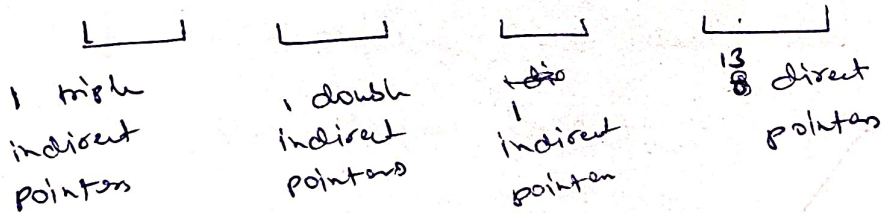 1 triple
indirect
pointers
1 double
indirect
pointers
1
indirect
pointer
13 direct
pointers